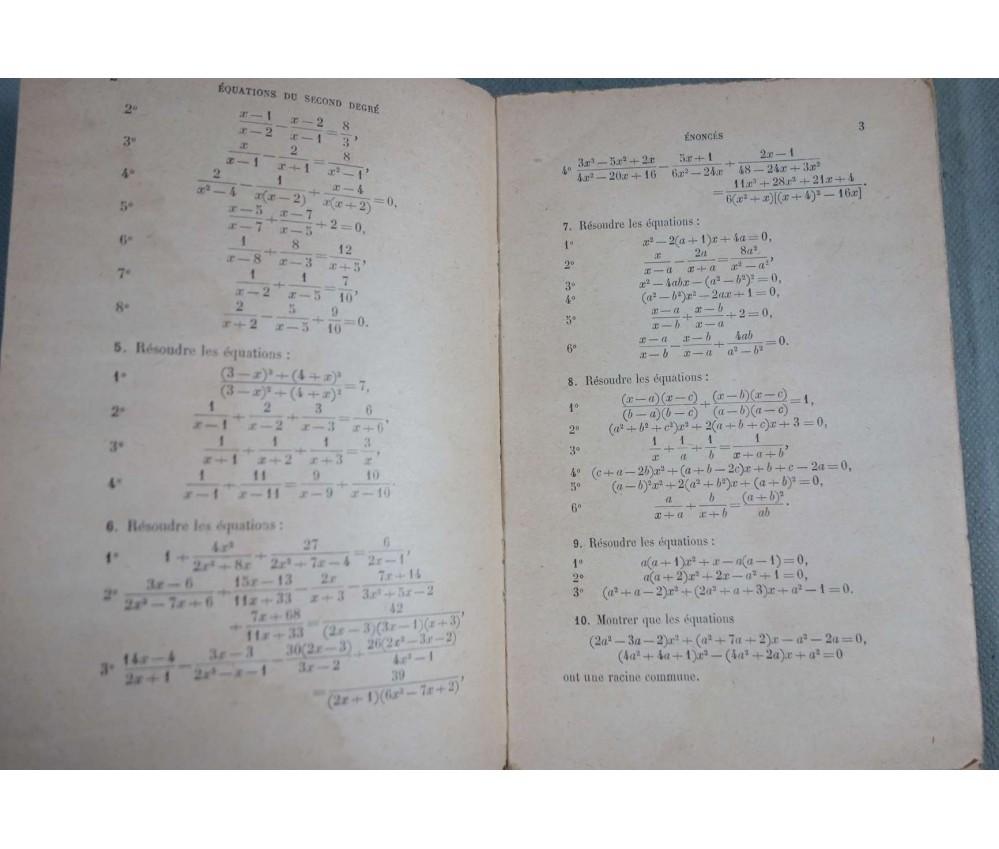 ÉQUATIONS DU SECOND DEGRÉ
2° (x−1)/(x−2) − (x−2)/(x−1) = 8/3,
3° x/(x−1) − 2/(x+1) = 8/(x²−1),
4° 2/(x²−4) − 1/(x(x−2)) + (x−4)/(x(x+2)) = 0,
5° (x−5)/(x−7) + (x−7)/(x−5) + 2 = 0,
6° 1/(x−8) + 8/(x−3) = 12/(x+5),
7° 1/(x−2) + 1/(x−5) = 7/10,
8° 2/(x+2) − 5/(x−5) + 9/10 = 0.
5. Résoudre les équations :
1° ((3−x)³+(4+x)³)/((3−x)²+(4+x)²) = 7,
2° 1/(x−1) + 2/(x−2) + 3/(x−3) = 6/(x+6),
3° 1/(x+1) + 1/(x+2) + 1/(x+3) = 3/x,
4° 1/(x−1) + 11/(x−11) = 9/(x−9) + 10/(x−10).
6. Résoudre les équations :
1° 1 + 4x²/(2x²+8x) + 27/(2x²+7x−4) = 6/(2x−1),
2° (3x−6)/(2x²−7x+6) + (15x−13)/(11x+33) − 2x/(x+3) − (7x+14)/(3x²+5x−2)
+ (7x+68)/(11x+33) = 42/((2x−3)(3x−1)(x+3)),
3° (14x−4)/(2x+1) − (3x−3)/(2x²−x−1) − 30(2x−3)/(3x−2) + 26(2x²−3x−2)/(4x²−1)
= 39/((2x+1)(6x²−7x+2)),
ÉNONCÉS 3
4° (3x³−5x²+2x)/(4x²−20x+16) − (5x+1)/(6x²−24x) + (2x−1)/(48−24x+3x²)
= (11x³+28x²+21x+4)/(6(x²+x)[(x+4)²−16x]).
7. Résoudre les équations :
1° x²−2(a+1)x+4a=0,
2° x/(x−a) − 2a/(x+a) = 8a²/(x²−a²),
3° x²−4abx−(a²−b²)²=0,
4° (a²−b²)x²−2ax+1=0,
5° (x−a)/(x−b) + (x−b)/(x−a) + 2 = 0,
6° (x−a)/(x−b) − (x−b)/(x−a) + 4ab/(a²−b²) = 0.
8. Résoudre les équations :
1° (x−a)(x−c)/((b−a)(b−c)) + (x−b)(x−c)/((a−b)(a−c)) = 1,
2° (a²+b²+c²)x²+2(a+b+c)x+3=0,
3° 1/x + 1/a + 1/b = 1/(x+a+b),
4° (c+a−2b)x²+(a+b−2c)x+b+c−2a=0,
5° (a−b)²x²+2(a²+b²)x+(a+b)²=0,
6° a/(x+a) + b/(x+b) = (a+b)²/ab.
9. Résoudre les équations :
1° a(a+1)x²+x−a(a−1)=0,
2° a(a+2)x²+2x−a²+1=0,
3° (a²+a−2)x²+(2a²+a+3)x+a²−1=0.
10. Montrer que les équations
(2a²−3a−2)x²+(a²+7a+2)x−a²−2a=0,
(4a²+4a+1)x²−(4a²+2a)x+a²=0
ont une racine commune.